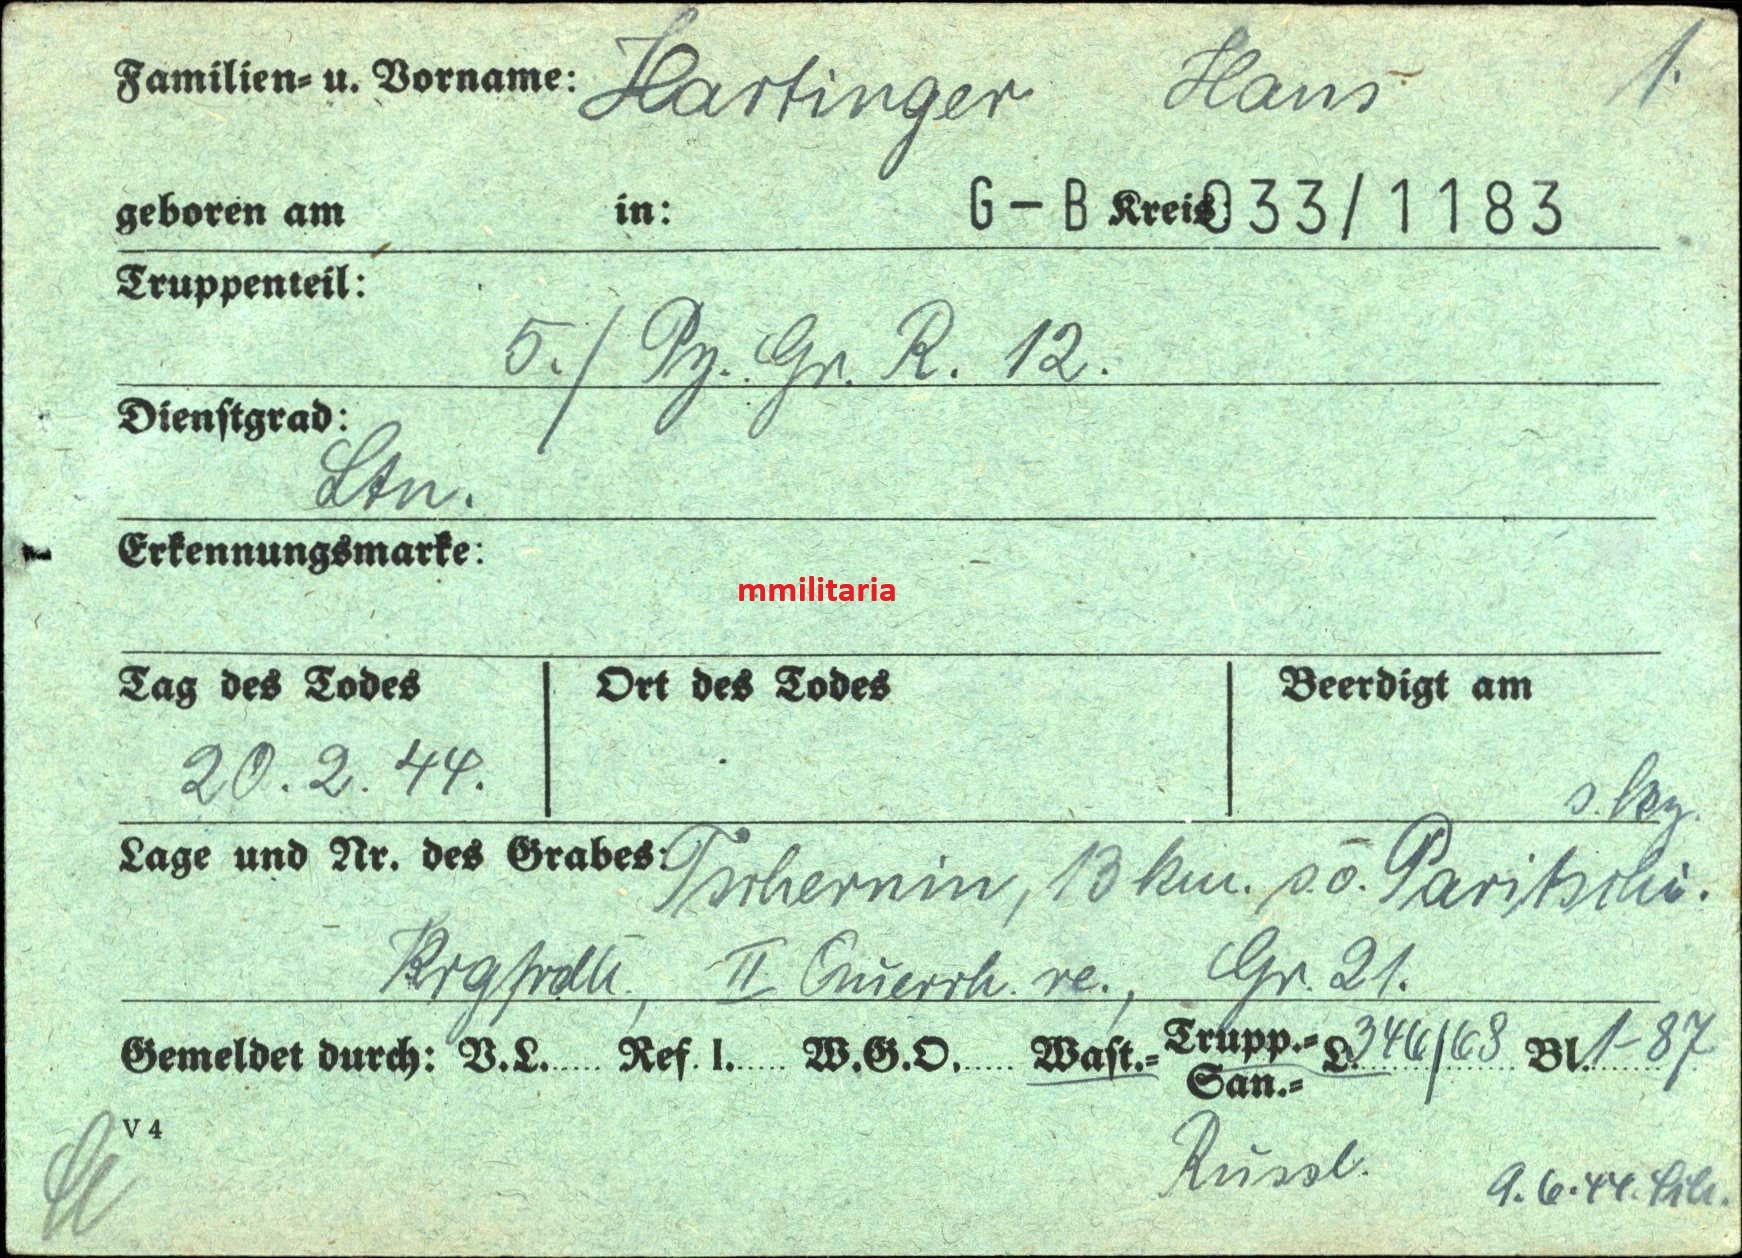 Familien- u. Vorname: Hartinger Hans 1.
geboren am in: G-B Kreis 033/1183
Truppenteil:
5./ Pz. Gr. R. 12.
Dienstgrad:
Ltn.
Erkennungsmarke:
mmilitaria
Tag des Todes Ort des Todes Beerdigt am
20. 2. 44.
Lage und Nr. des Grabes: Tschernin, 13 km. sö. Paritschi.
II Querrh. re., Gr. 21.
Gemeldet durch: V.L..... Ref. I..... W.G.O..... Wast.- Trupp.- San.- L. 346/68 Bl. 1-87
V 4
Russl.
9.6.44.